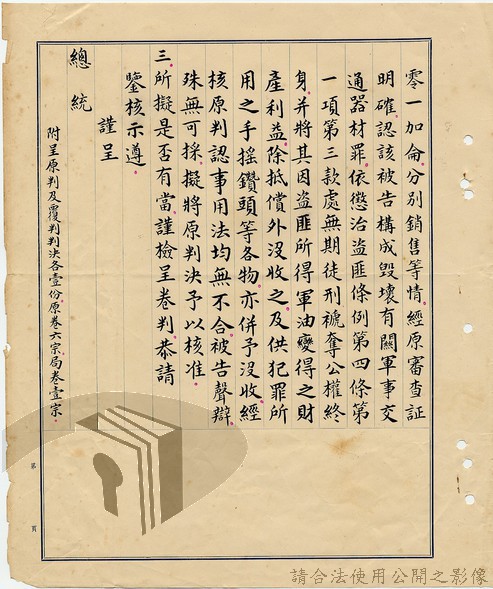 零一加侖分別銷售等情。經原審查証
明確。認該被告構成毀壞有關軍事交
通器材罪。依懲治盜匪條例第四條第
一項第三款處無期徒刑褫奪公權終
身。并將其因盜匪所得軍油變得之財
產利益。除抵償外沒收之。及供犯罪所
用之手搖鑽頭等各物。亦併予沒收。經
核原判認事用法均無不合。被告聲辯。
殊無可採。擬將原判決予以核准。
三。所擬是否有當。謹檢呈卷判。恭請
鑒核示遵。
謹呈
總統
附呈原判及覆判判決各壹份。原卷六宗。局卷壹宗。
第 頁
請合法使用公開之影像